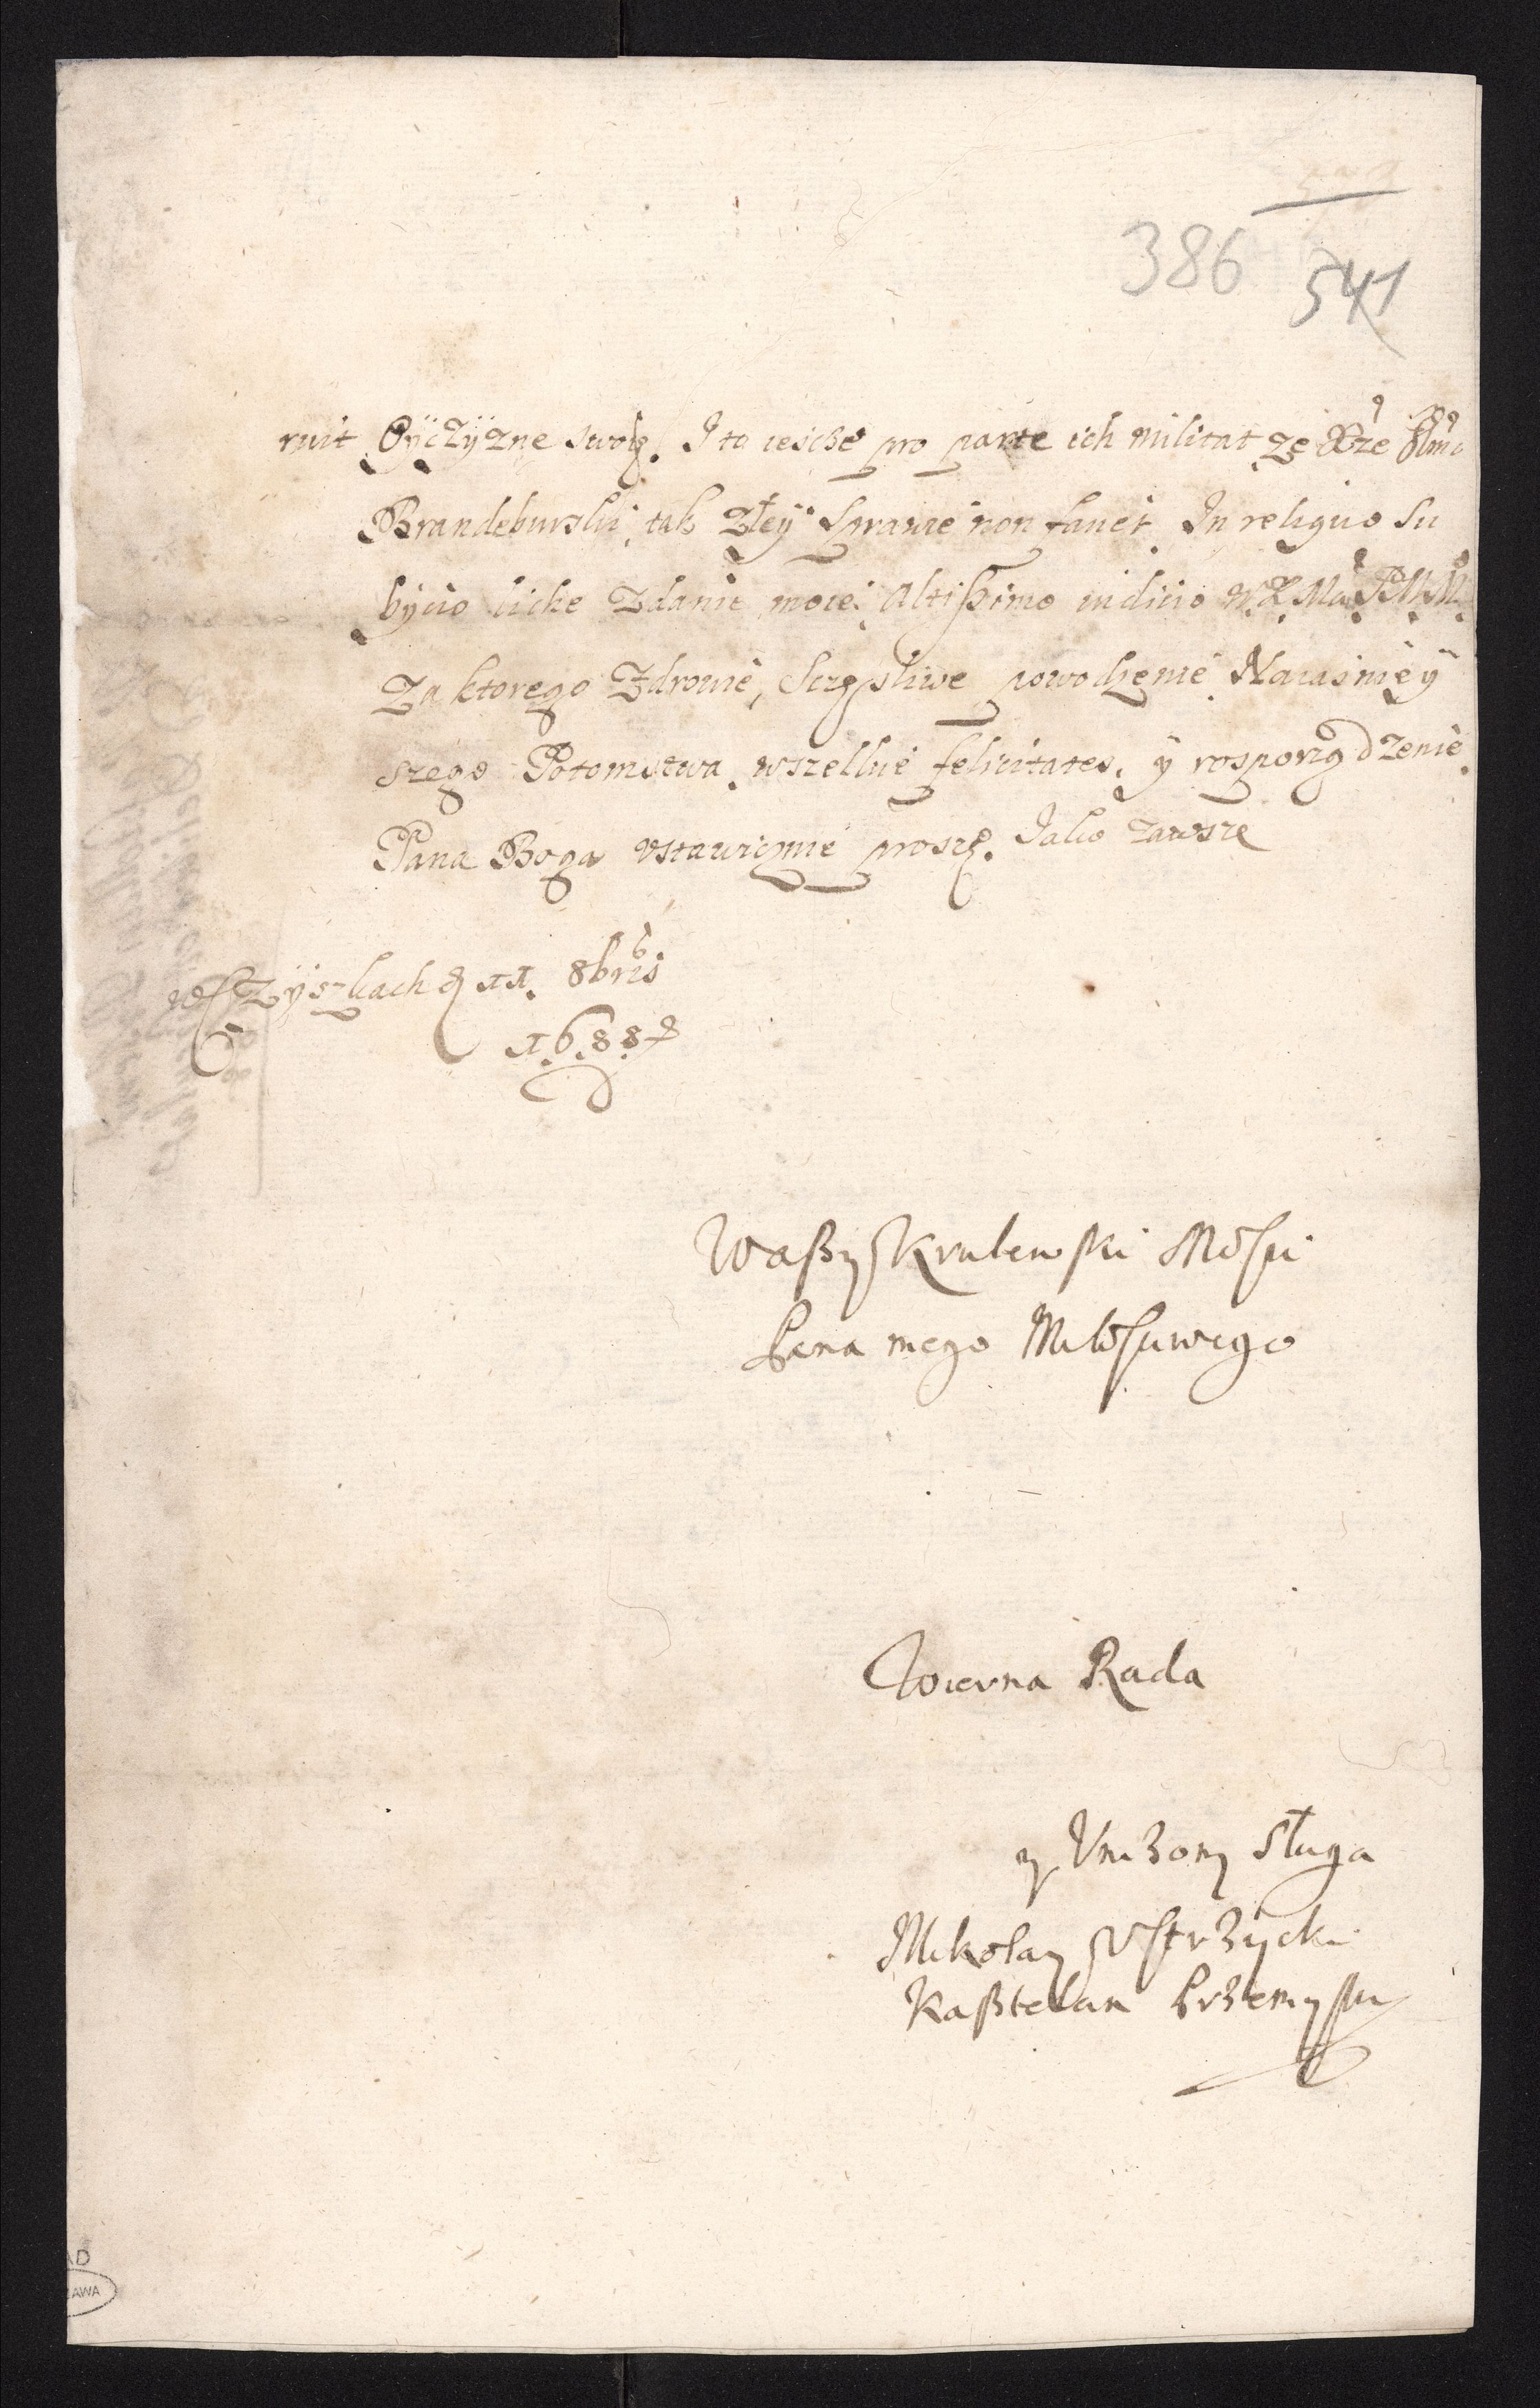 386 541
ruit Oyczyznę swoię. I to iescze pro parte ich militat że Xże Jmć
Brandeburski, tak złey sprawie non favet. In reliquo su
bycio liche zdanie moie, altissimo iudicio W.K.Mci P.M.M.
Za ktorego zdrowie, sczęsliwe powodzenie Naiasniey
szego Potomstwa, wszelkie felicitates, y rosporządzenie
Pana Boga ustawicznie proszę. Jako zawsze
11. 8bris
1688
Waszy Krulewski Mosci
Pana mego Miłosciwego
Wierna Rada
y Vnizony Sługa
Mikołay Vstrzycki
Kasztelan Przemyski
AD
ZAWA